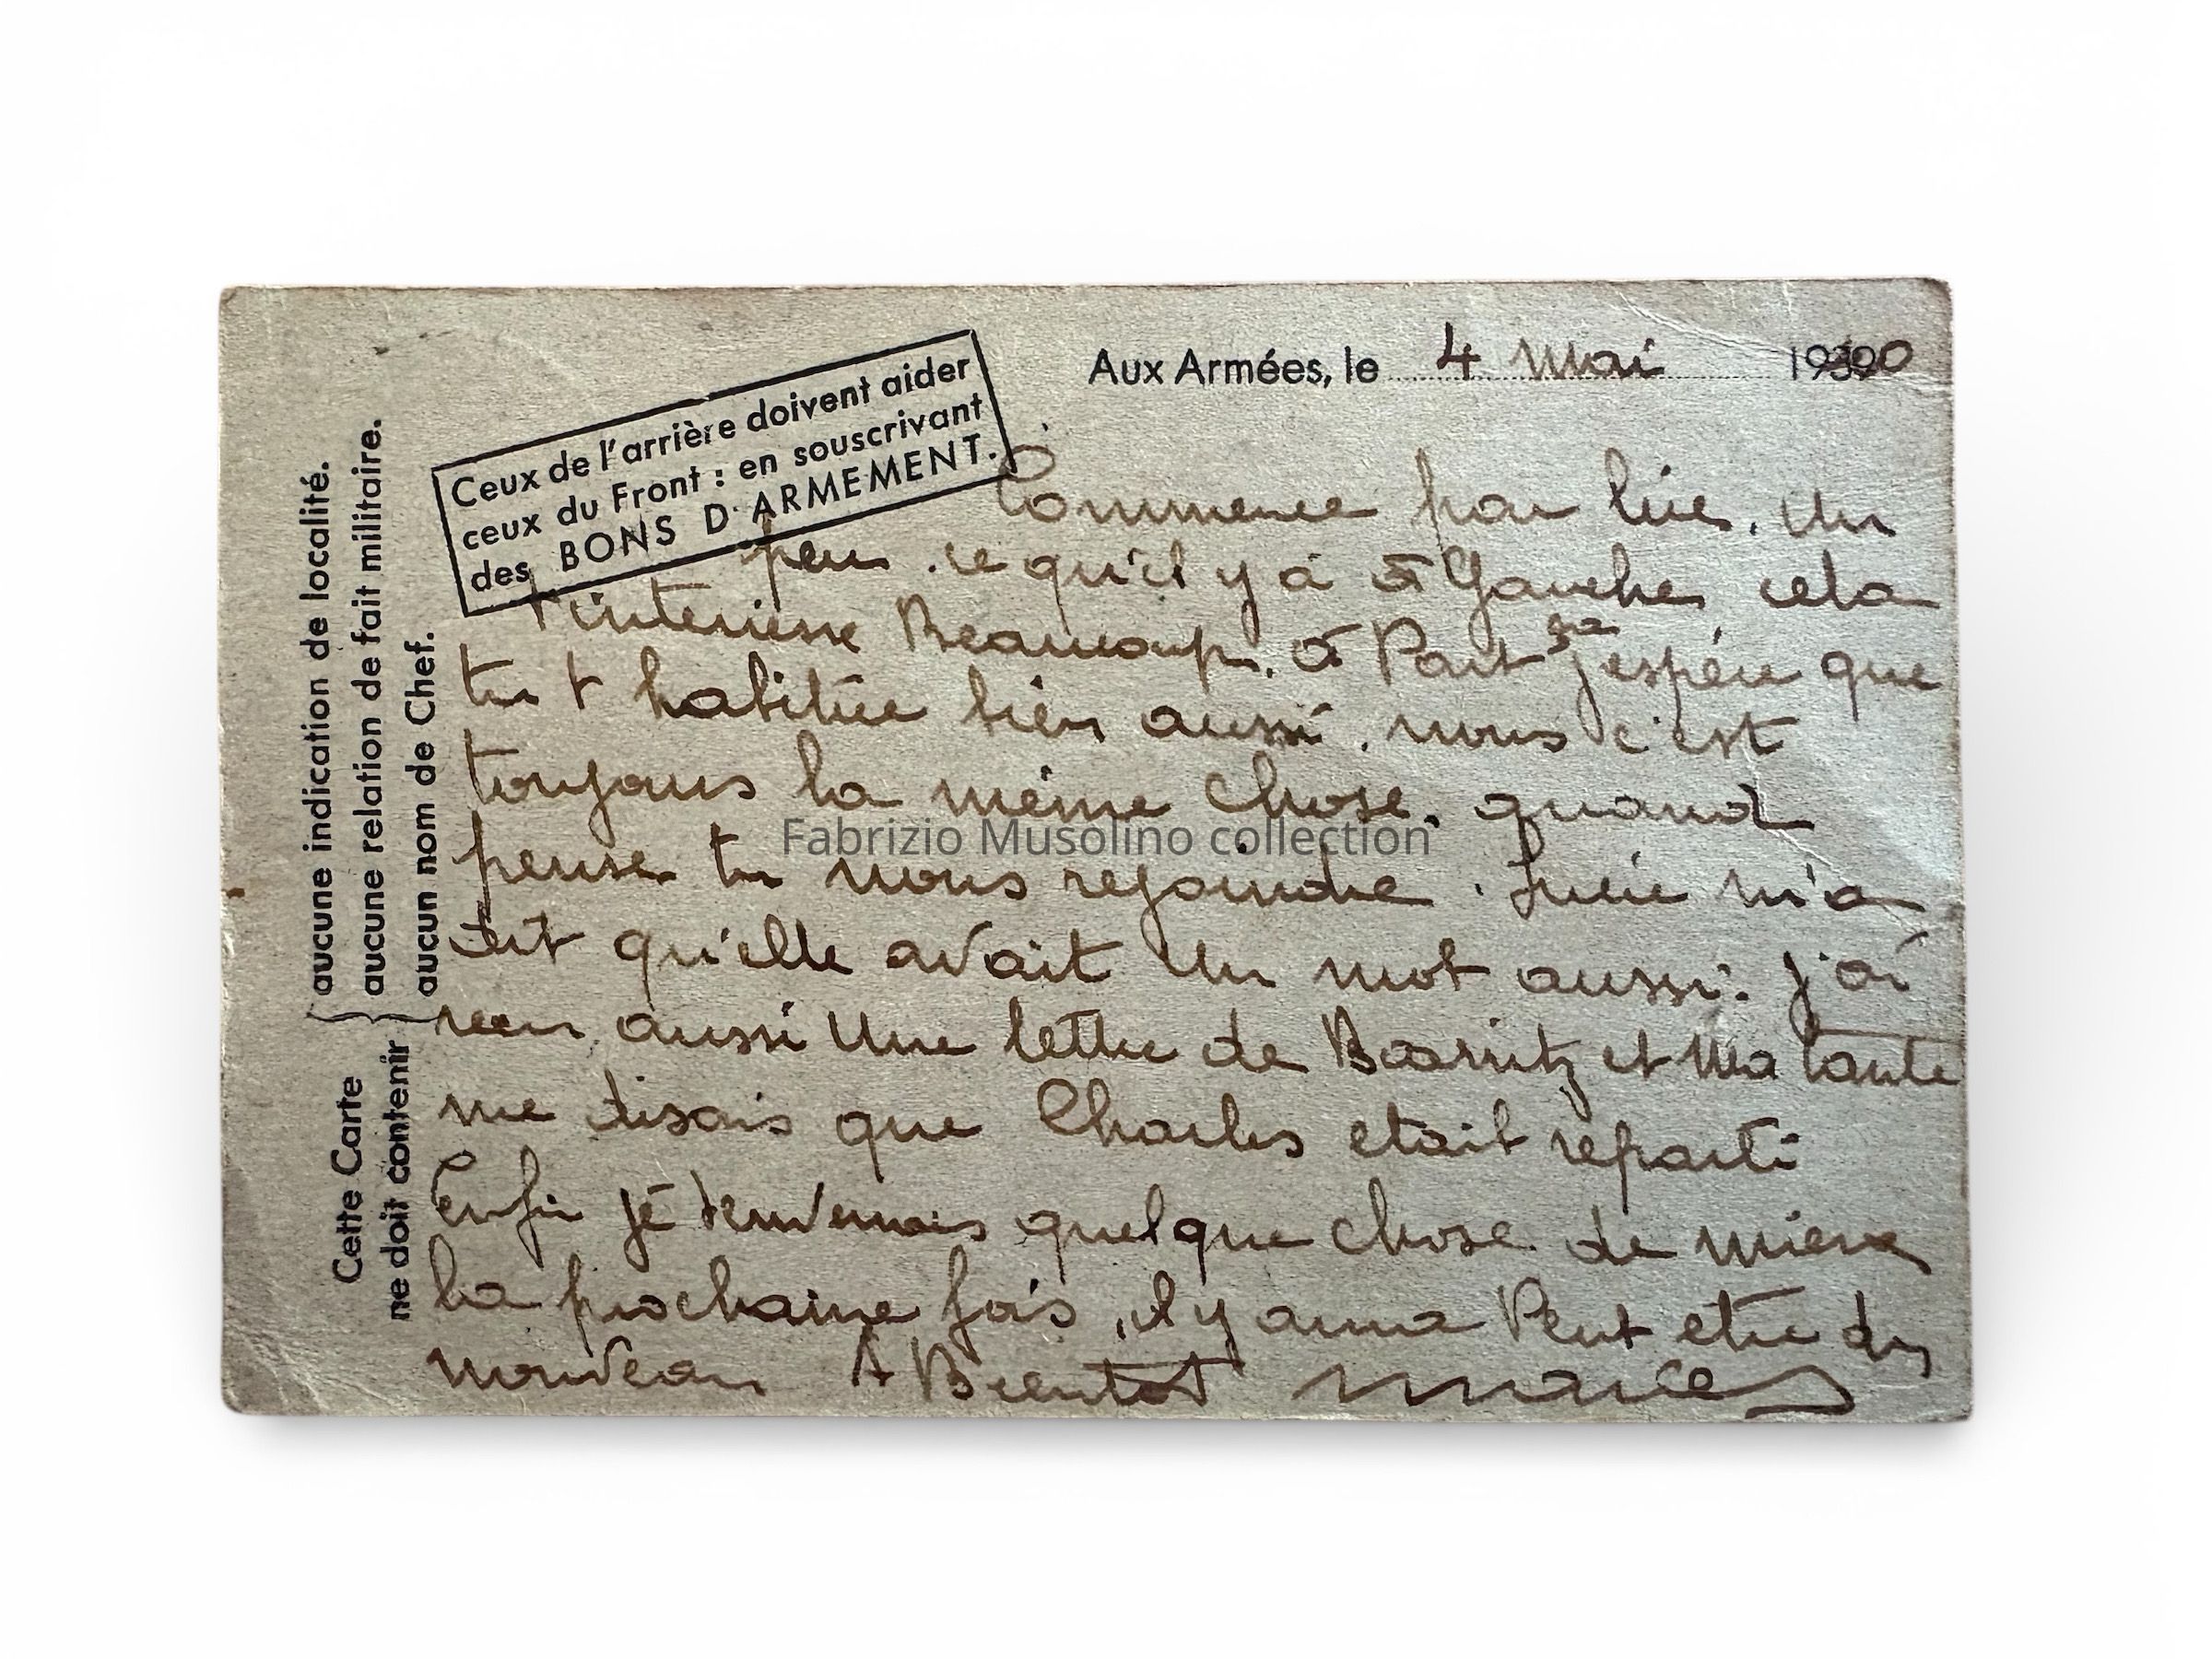 Aux Armées, le 4 mai 1940
Ceux de l'arrière doivent aider
ceux du Front : en souscrivant
des BONS D'ARMEMENT.
Cette Carte
ne doit contenir
aucune indication de localité.
aucune relation de fait militaire.
aucun nom de Chef.
Commence par lire. Un
peu. ce qu'il y a à Gauche, cela
t'interesse Beaucoup. à Part ça j'espére que
tu t habitue bien aussi. nous c'est
toujours la même chose. quand
pense tu nous rejoindre. Lucie m'a
dit qu'elle avait Un mot aussi. j'ai
recu aussi Une lettre de Biarritz et Ma tante
me disais que Charles etait reparti
Enfin je quelque chose de mieux
la prochaine fois, il y aura Peut etre du
nouveau A Bientot Marcel
Fabrizio Musolino collection